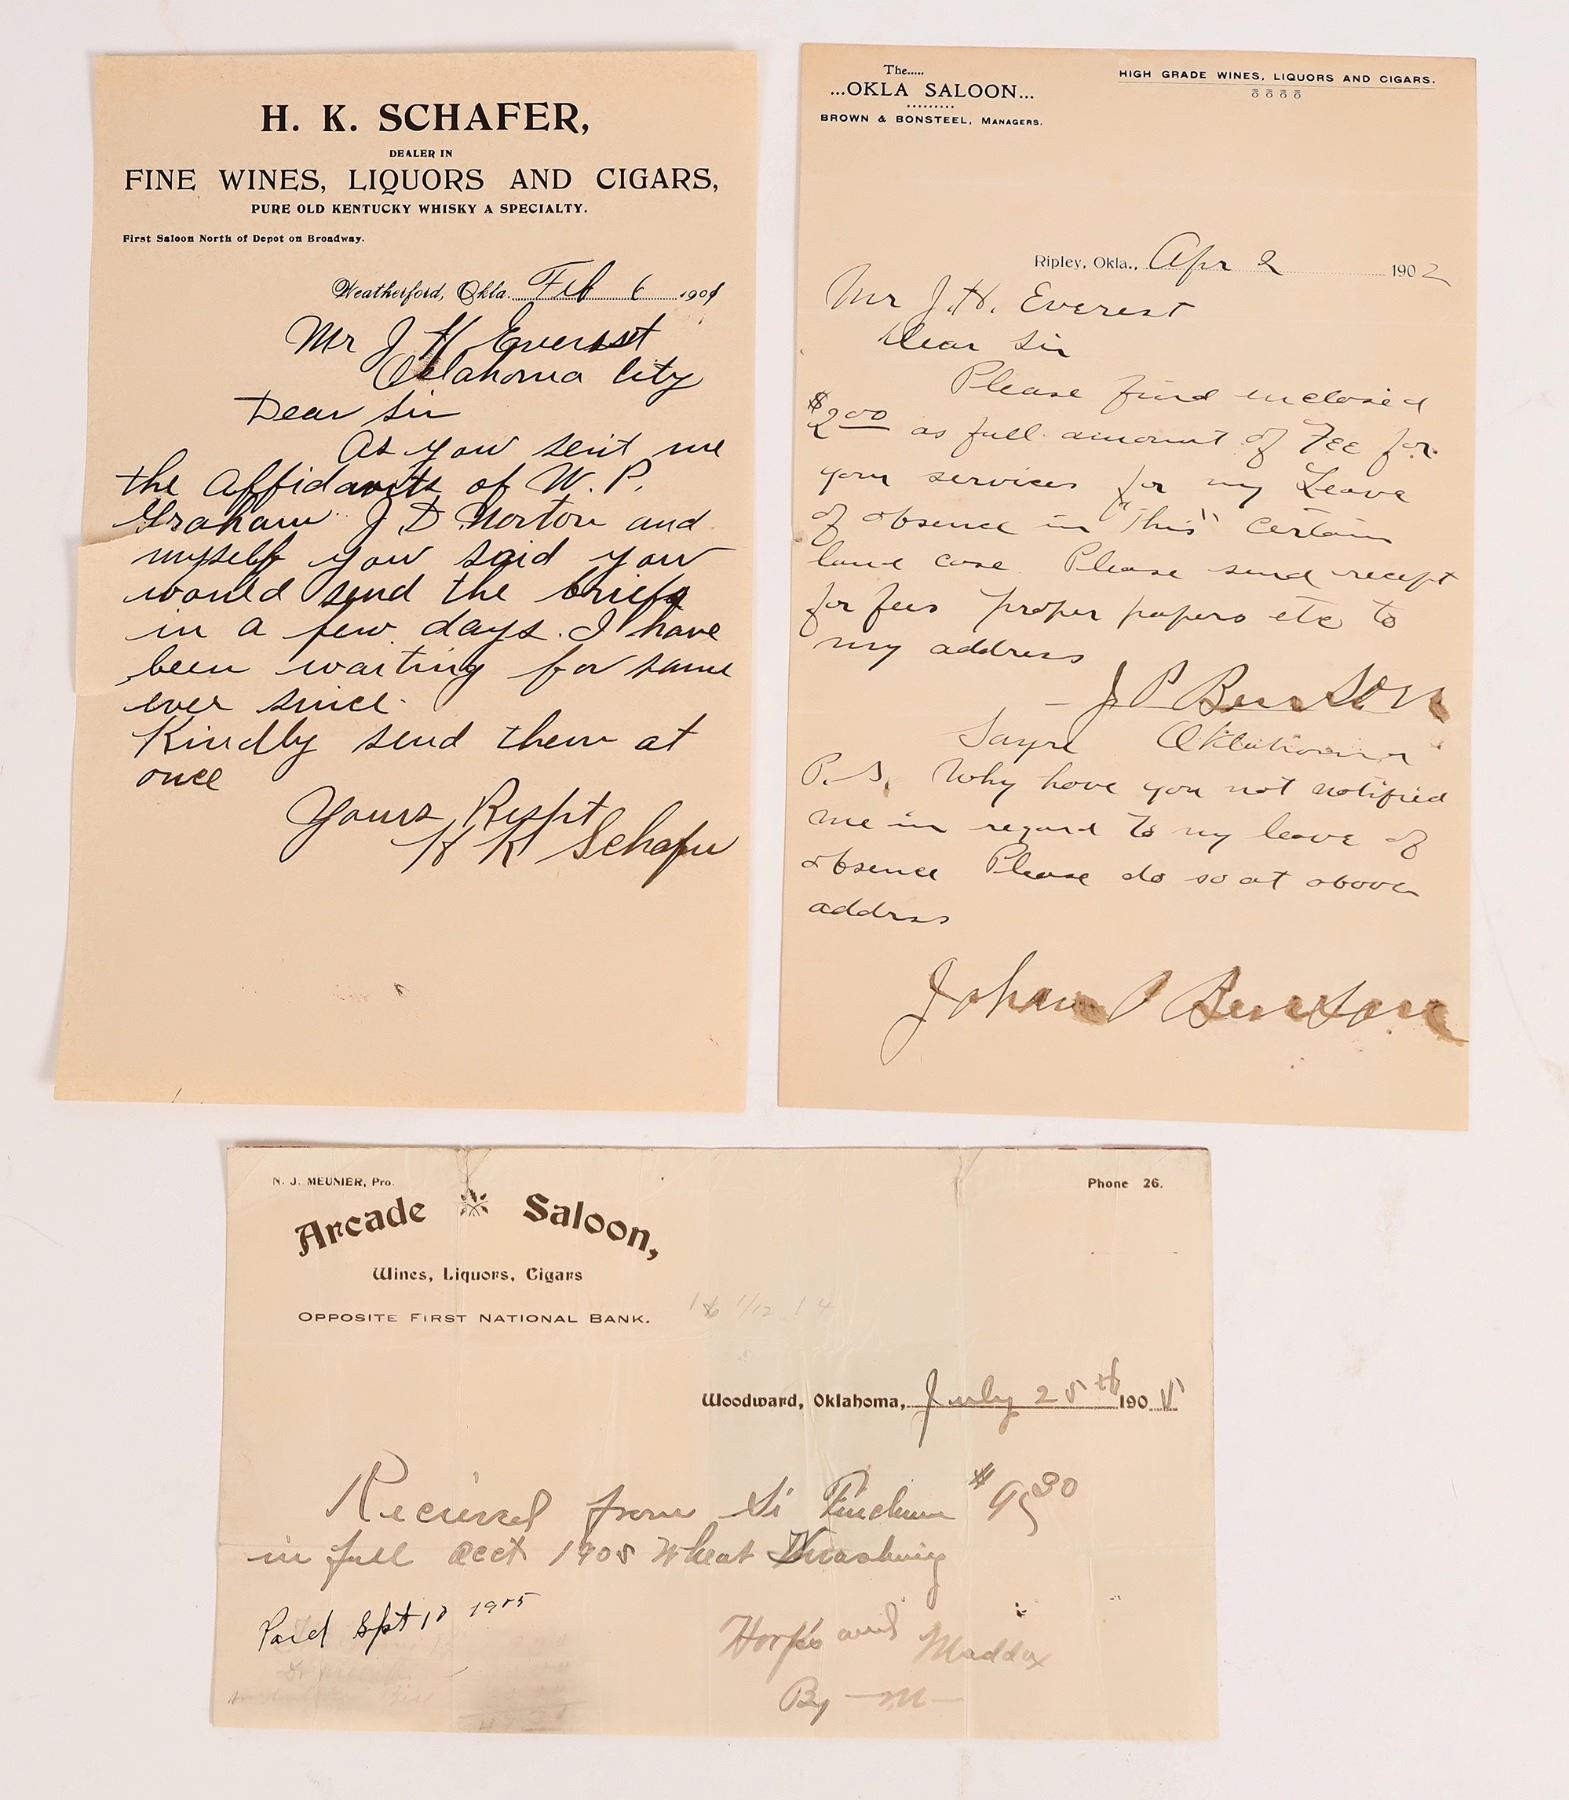 H. K. SCHAFER,
DEALER IN
FINE WINES, LIQUORS AND CIGARS,
PURE OLD KENTUCKY WHISKY A SPECIALTY.
First Saloon North of Depot on Broadway.
Weatherford, Okla. Feb 6 1901
Mr J H Everest
Oklahoma City
Dear Sir
As you sent me
the affidavits of W. P.
Graham J D Norton and
myself you said you
would send the briefs
in a few days. I have
been waiting for same
ever since.
Kindly send them at
once
Yours Respt
H K Schafer
The.....
...OKLA SALOON...
BROWN & BONSTEEL, MANAGERS.
HIGH GRADE WINES, LIQUORS AND CIGARS.
Ripley, Okla., Apr 2 1902
Mr J. H. Everest
Dear Sir
Please find enclosed
$2.00 as full amount of Fee for
your services for my Leave
of absence in "This" certain
land case. Please send recept
for fees proper papers etc to
my address
J P Benson
Sayre Oklahoma
P. S. Why have you not notified
me in regard to my leave of
absence Please do so at above
address
Johan P Benson
N. J. MEUNIER, Pro.
Phone 26.
Arcade Saloon,
Wines, Liquors, Cigars
OPPOSITE FIRST NATIONAL BANK.
Woodward, Oklahoma, July 25th 1905
Recieved from Si Fincham $95.30
in full acct 1905 Wheat Thrashing
Paid Sept 18 1905
and Maddox
By — M —